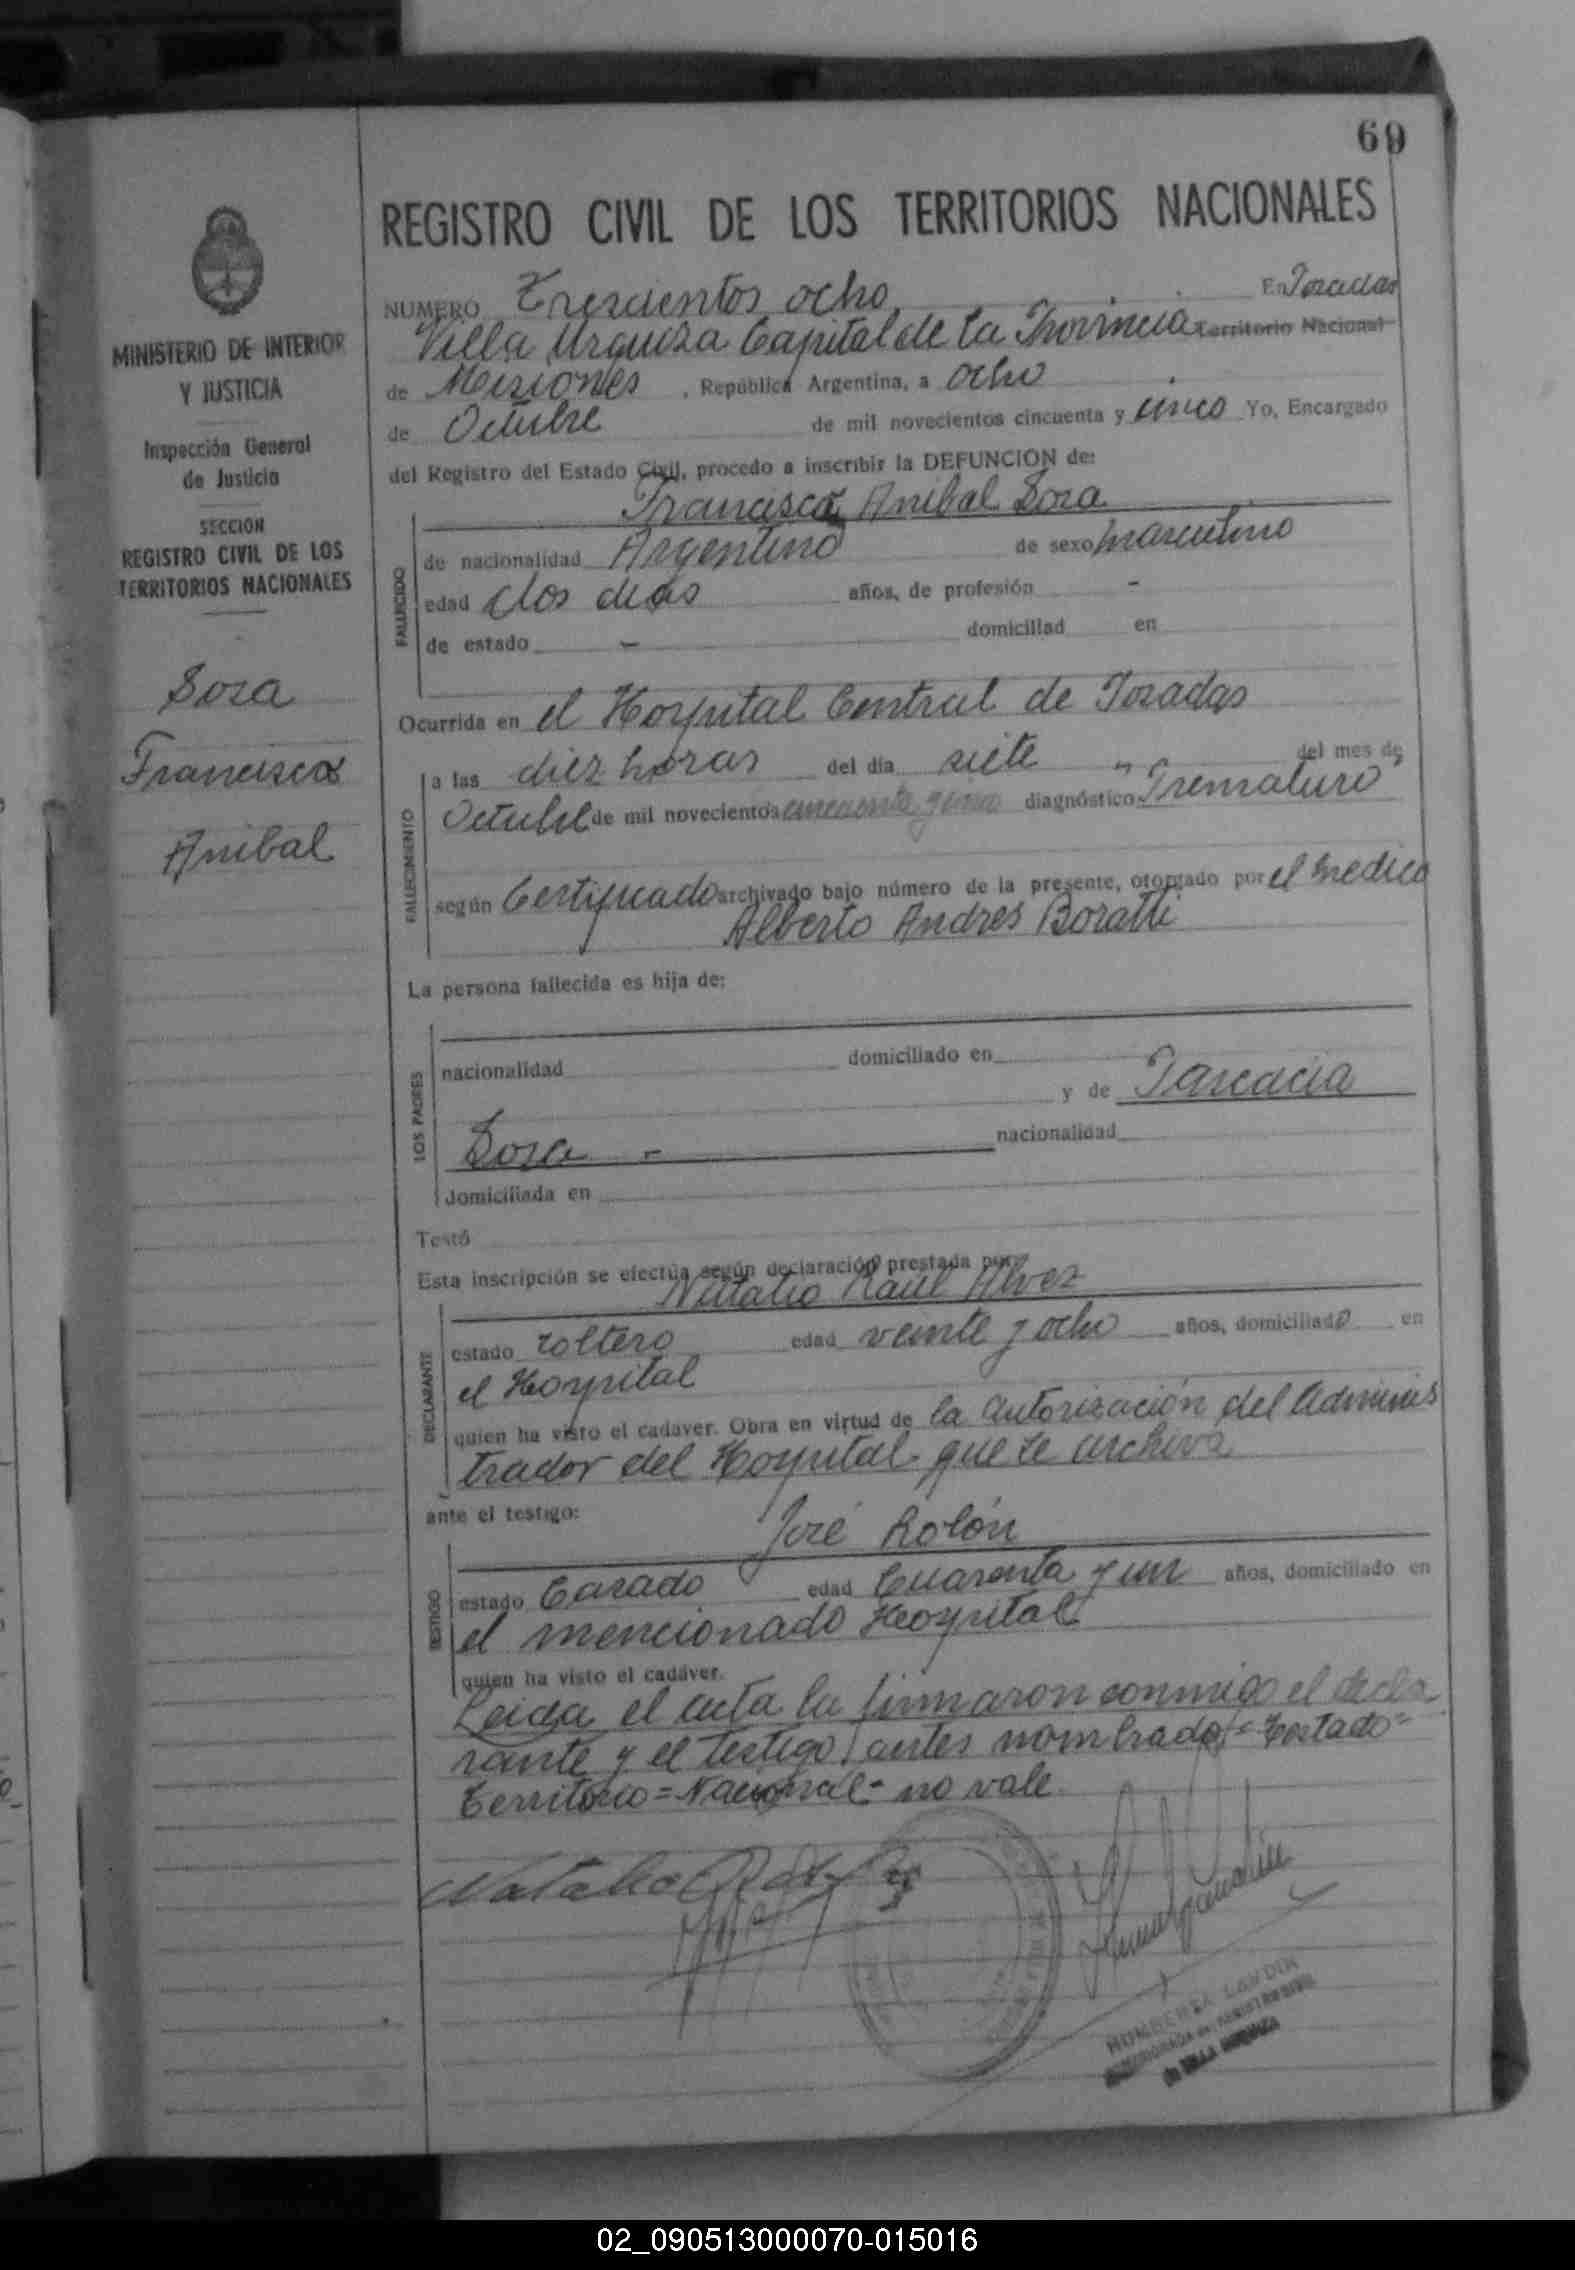 69
REGISTRO CIVIL DE LOS TERRITORIOS NACIONALES
NUMERO Trescientos ocho En Posadas
Villa Urquiza Capital de la Provincia Territorio Nacional
de Misiones, República Argentina, a ocho
de Octubre de mil novecientos cincuenta y cinco Yo, Encargado
del Registro del Estado Civil, procedo a inscribir la DEFUNCION de:
MINISTERIO DE INTERIOR
Y JUSTICIA
Inspección General
de Justicia
SECCION
REGISTRO CIVIL DE LOS
TERRITORIOS NACIONALES
Sosa
Francisco
Anibal
FALLECIDO
Francisco Anibal Sosa
de nacionalidad Argentino de sexo masculino
edad dos dias años, de profesión -
de estado - domiciliad en
Ocurrida en el Hospital Central de Posadas
FALLECIMIENTO
a las diez horas del día siete del mes de
Octubre de mil novecientos cincuenta y cinco diagnóstico "Prematuro"
según Certificado archivado bajo número de la presente, otorgado por el medico
Alberto Andres Boratti
La persona fallecida es hija de:
LOS PADRES
nacionalidad domiciliado en
y de Pascacia
Sosa - nacionalidad
domiciliada en
Testó
Esta inscripción se efectúa según declaración prestada por
DECLARANTE
Natalio Raul Alvez
estado soltero edad veinte y ocho años, domiciliado en
el Hospital
quien ha visto el cadaver. Obra en virtud de la autorización del Adminis
trador del Hospital que se archiva
ante el testigo:
TESTIGO
José Rolón
estado Casado edad Cuarenta y un años, domiciliado en
el mencionado Hospital
quien ha visto el cadáver.
Leida el acta la firmaron conmigo el decla
rante y el testigo antes nombrado = Testado =
Territorio = Nacional = no vale
HUMBERTA LANDIN
de VILLA URQUIZA
02_090513000070-015016